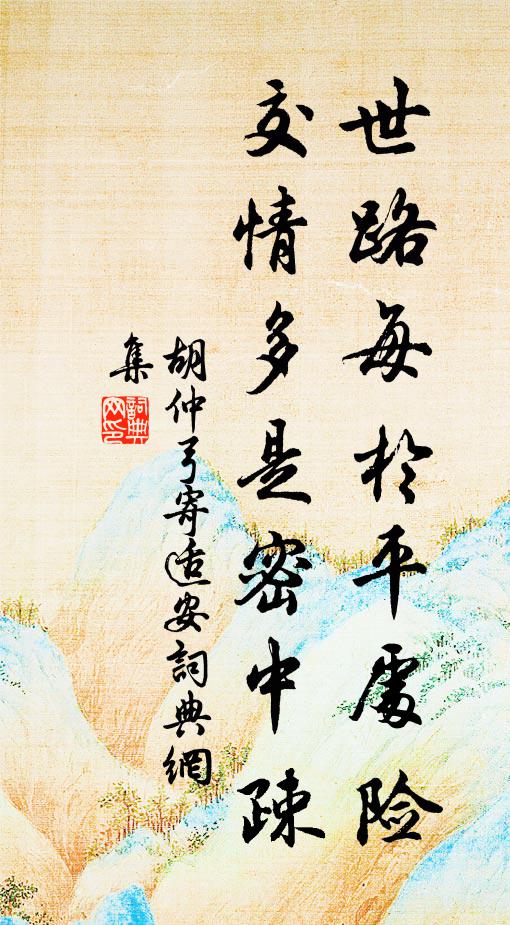 世路每於平處險
交情多是密中疎
胡仲弓寄适安詞典網
集
詞典網印